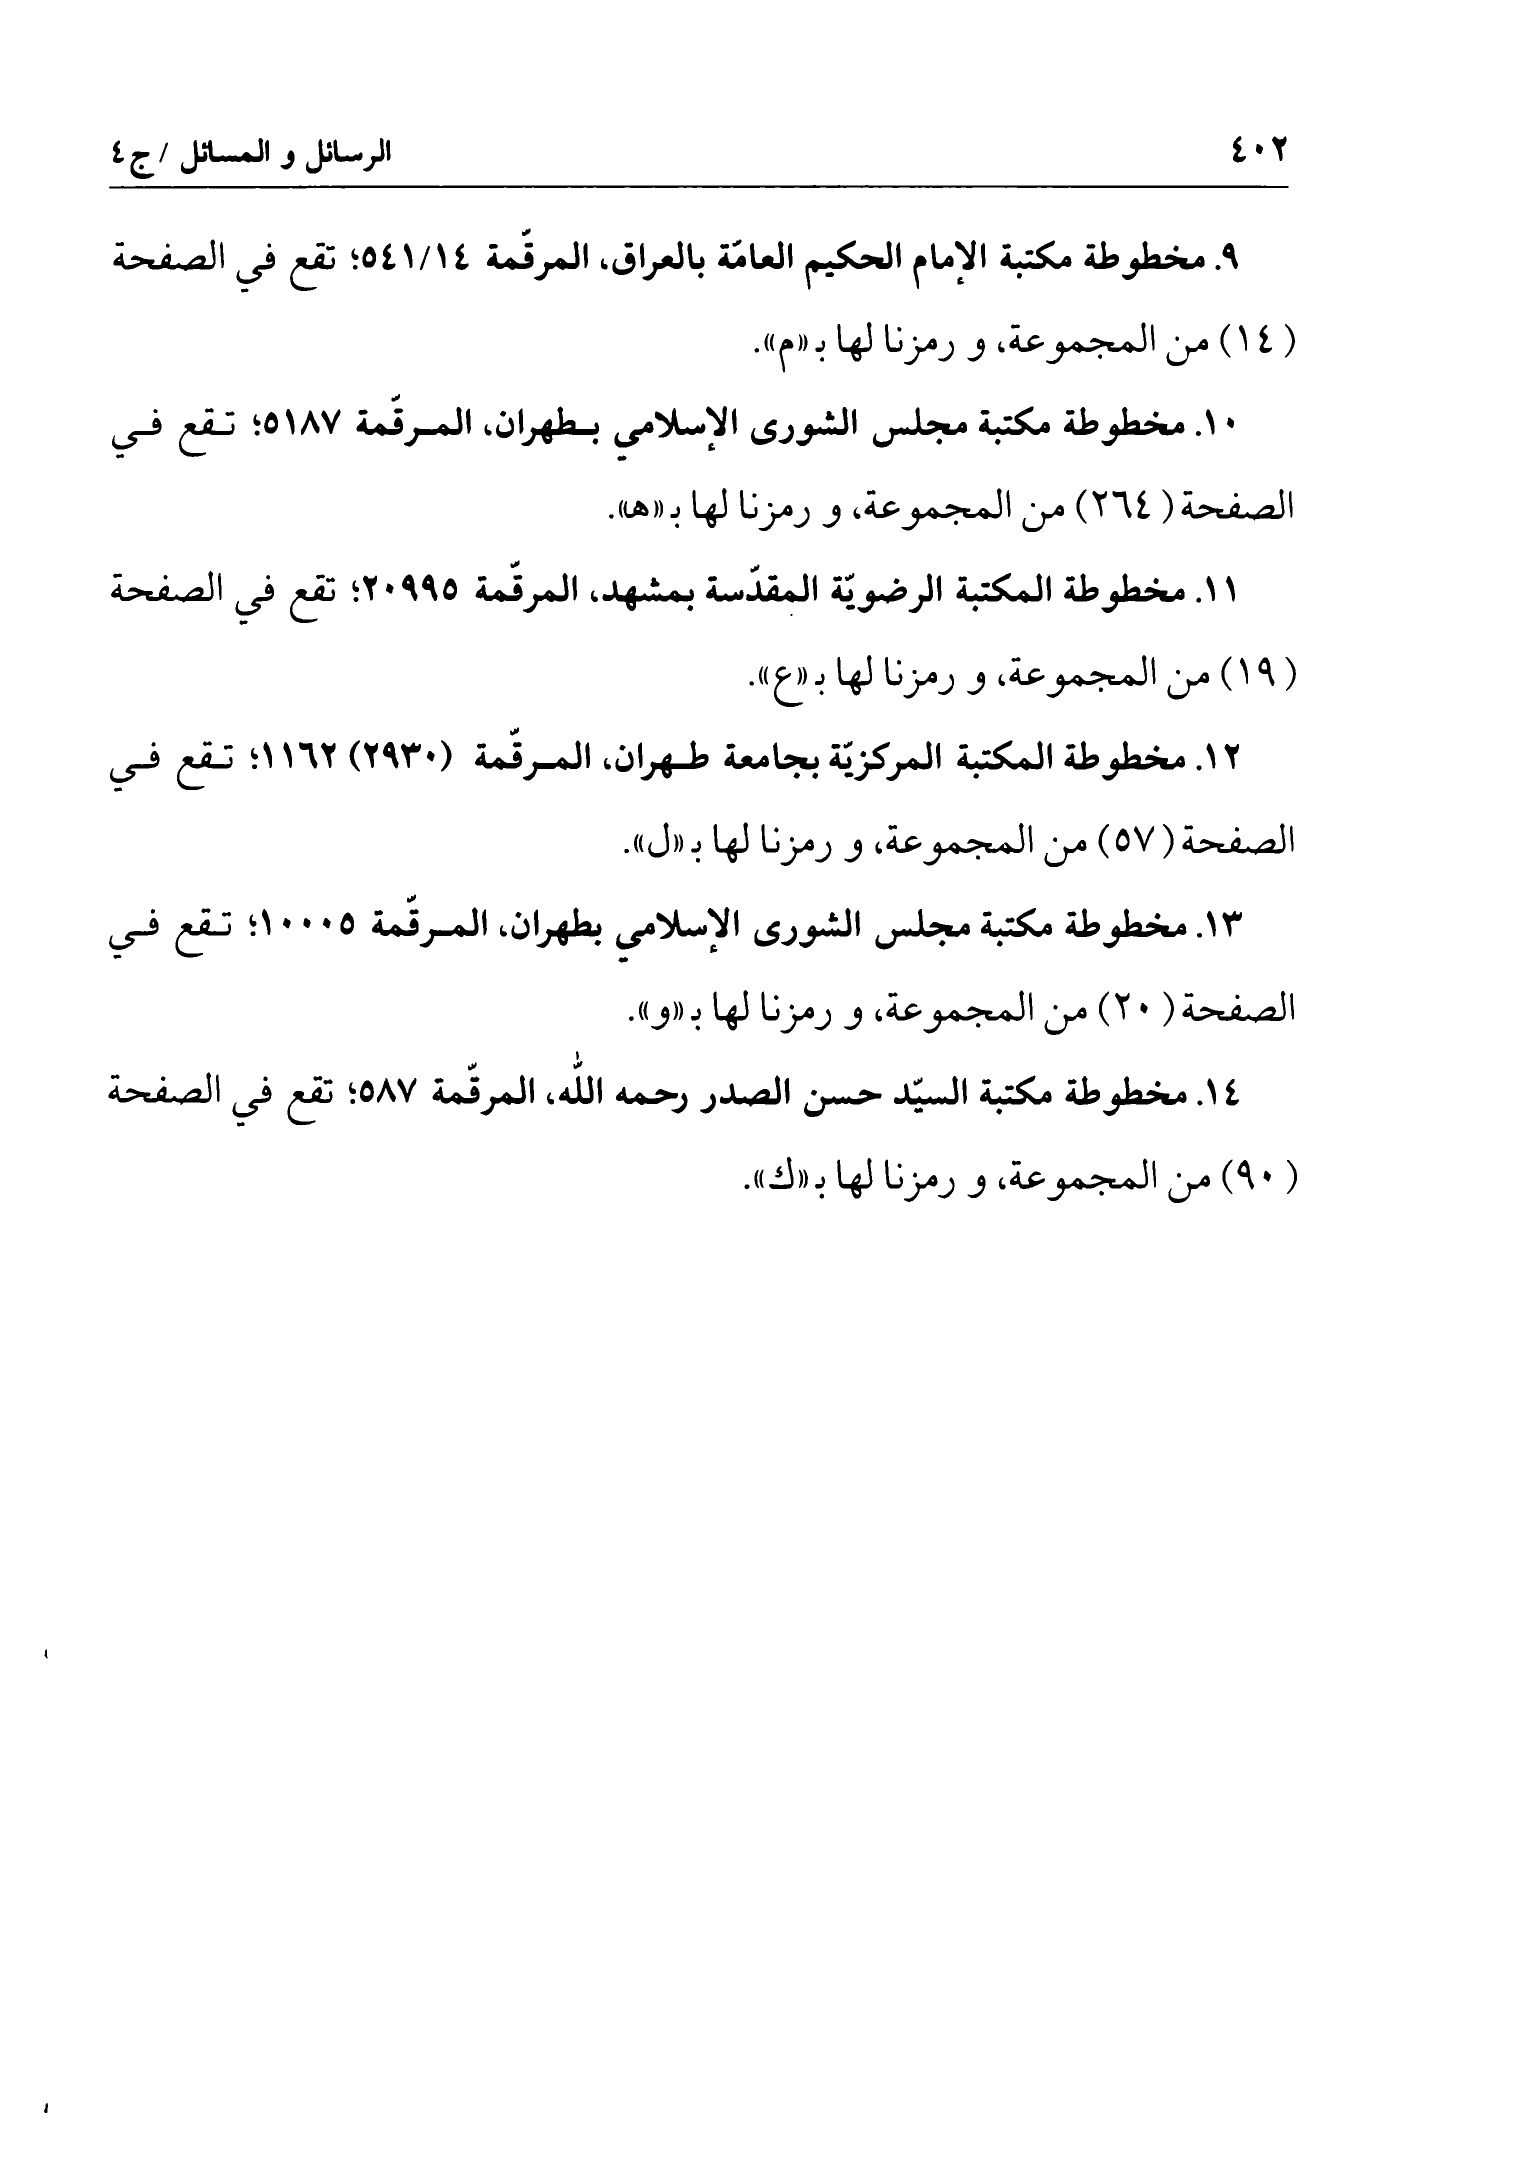 ٤٠٢ الرسائل و المسائل / ج٤
٩. مخطوطة مكتبة الإمام الحكيم العامّة بالعراق، المرقّمة ٥٤١/١٤؛ تقع في الصفحة
(١٤) من المجموعة، و رمزنا لها بـ«م».
١٠. مخطوطة مكتبة مجلس الشورى الإسلامي بـطهران، المـرقّمة ٥١٨٧؛ تـقع فـي
الصفحة (٢٦٤) من المجموعة، و رمزنا لها بـ«هـ».
١١. مخطوطة المكتبة الرضويّة المقدّسة بمشهد، المرقّمة ٢٠٩٩٥؛ تقع في الصفحة
(١٩) من المجموعة، و رمزنا لها بـ«ع».
١٢. مخطوطة المكتبة المركزيّة بجامعة طـهران، المـرقّمة (٢٩٣٠) ١١٦٢؛ تـقع فـي
الصفحة (٥٧) من المجموعة، و رمزنا لها بـ«ل».
١٣. مخطوطة مكتبة مجلس الشورى الإسلامي بطهران، المـرقّمة ١٠٠٠٥؛ تـقع فـي
الصفحة (٢٠) من المجموعة، و رمزنا لها بـ«و».
١٤. مخطوطة مكتبة السيّد حسن الصدر رحمه اللّٰه، المرقّمة ٥٨٧؛ تقع في الصفحة
(٩٠) من المجموعة، و رمزنا لها بـ«ك».